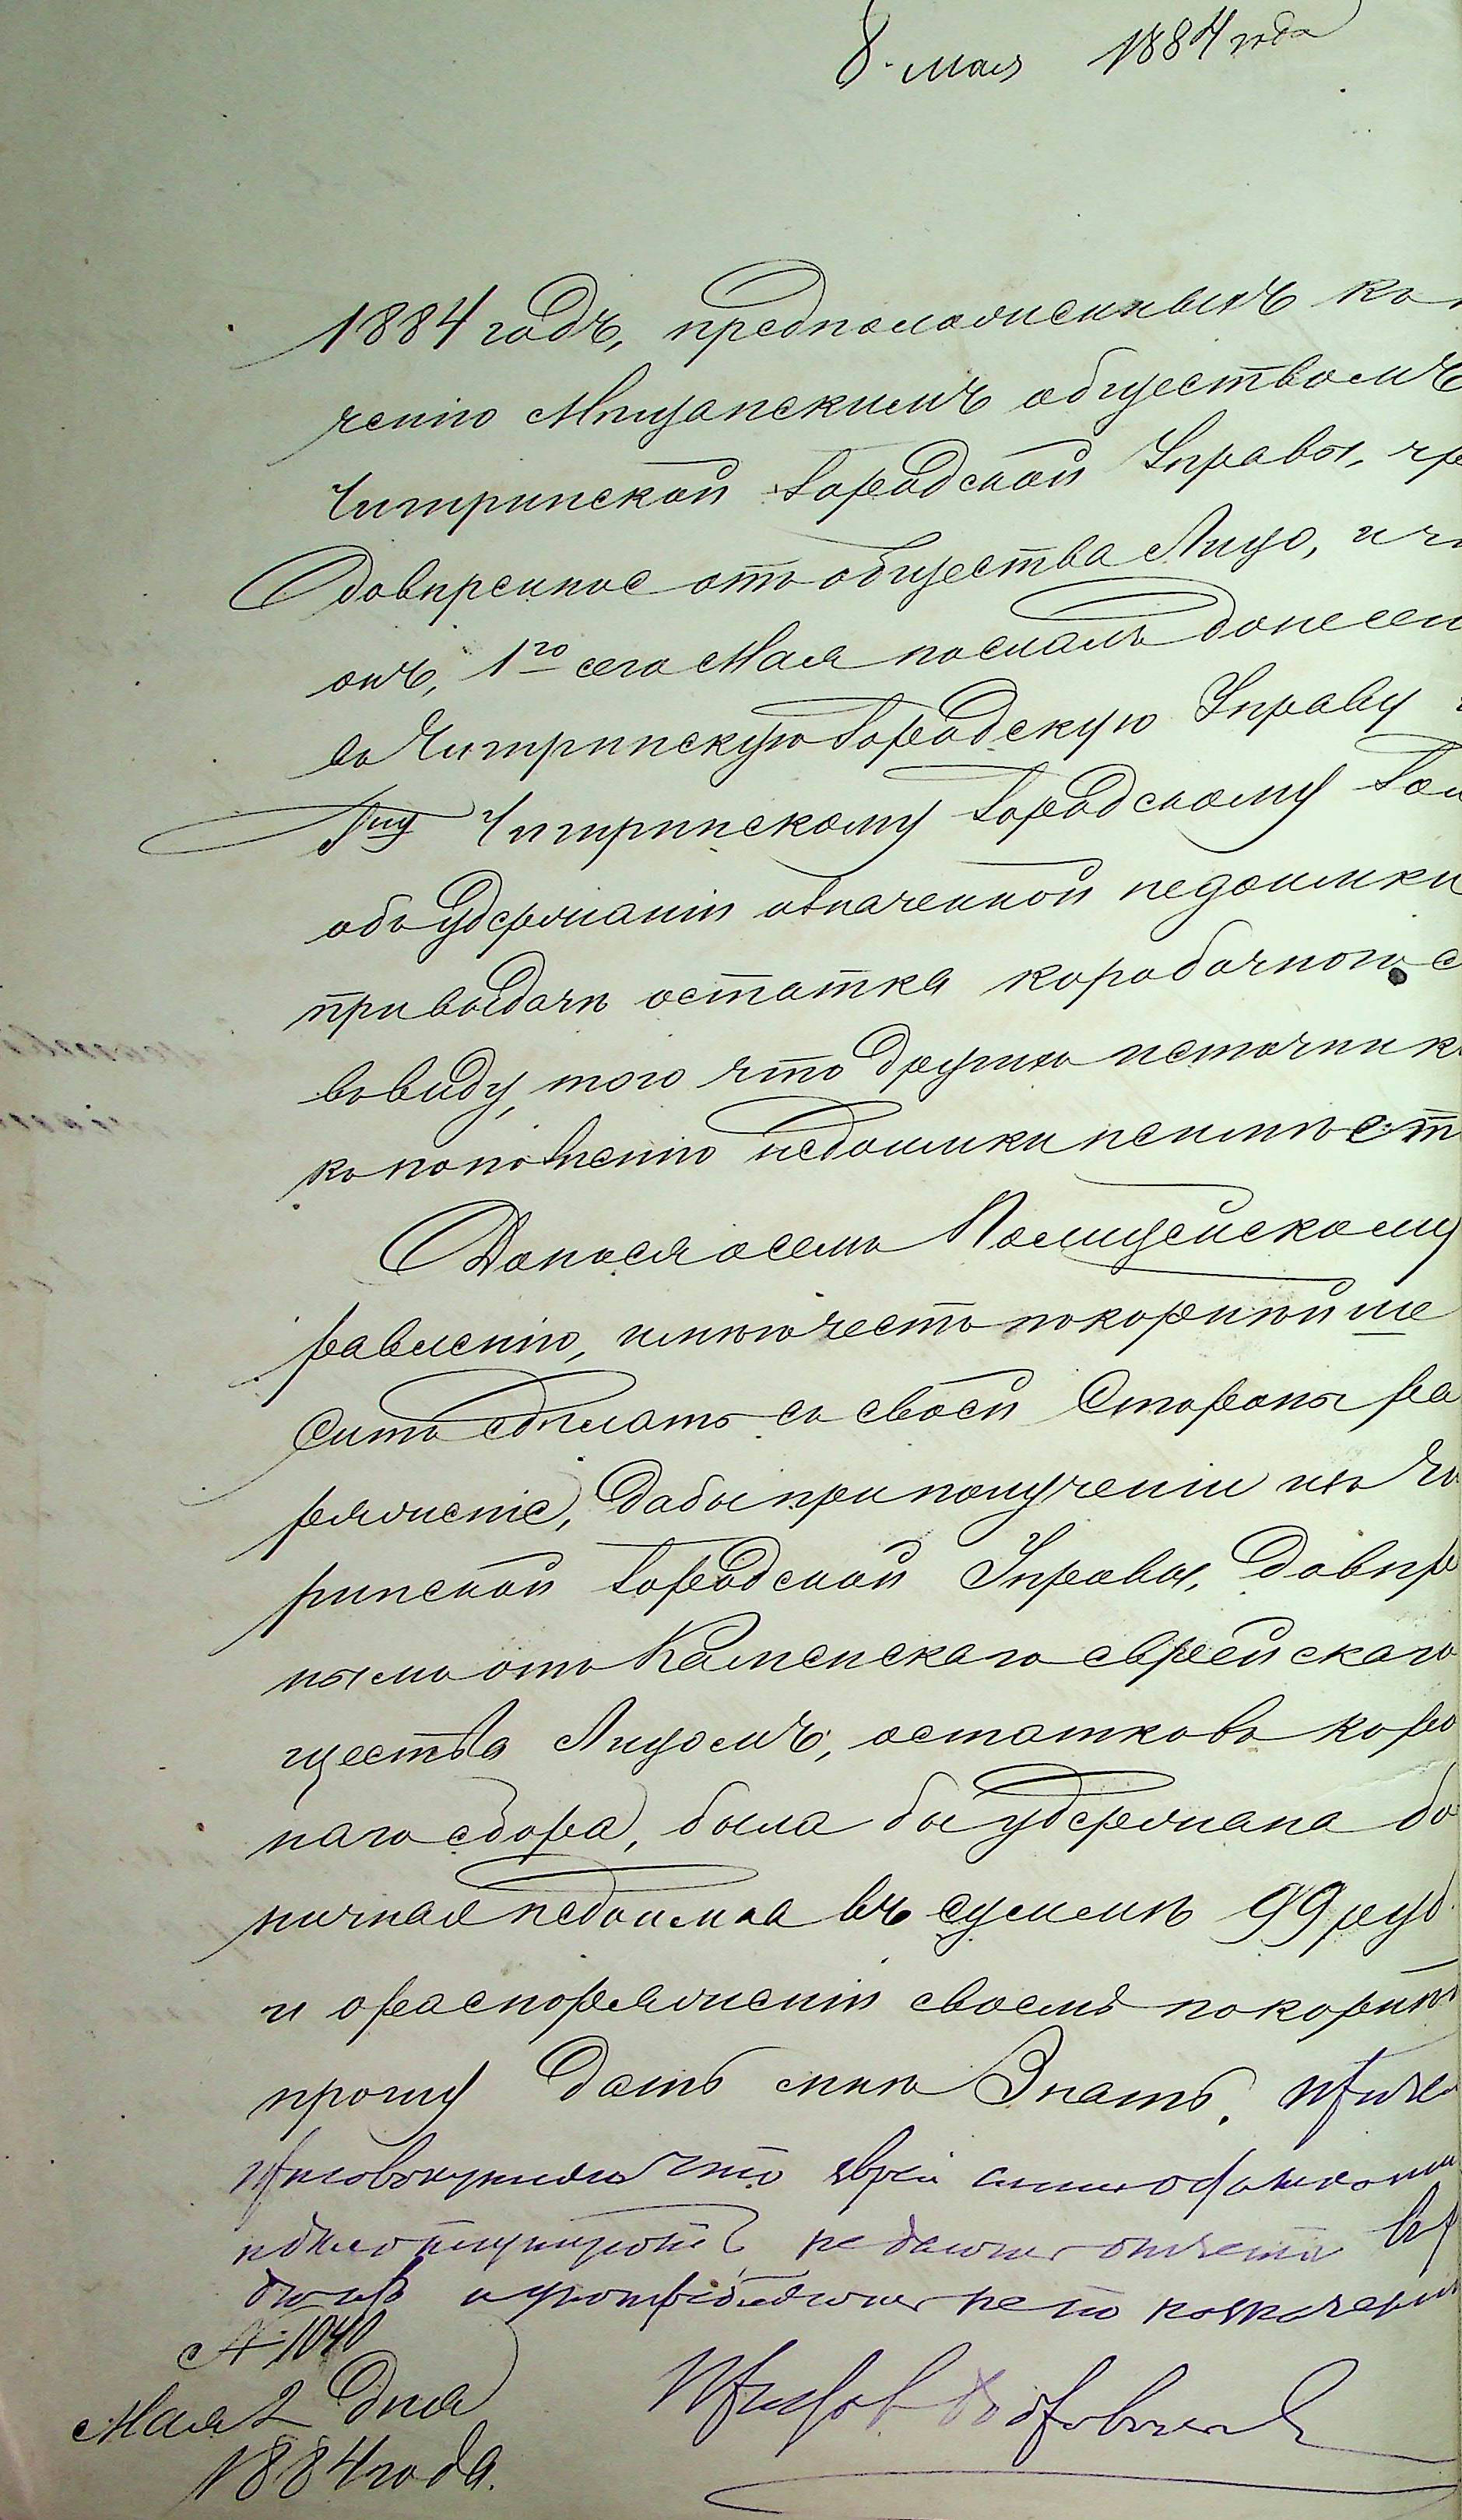 8. мая 1884 года
1884 годъ, предположенныхъ ко
ченію Мѣщанскимъ обществомъ
Чигринской Городской Управы, чр
Довѣренное отъ общества Лицо, и ч
онъ, 1го сего Мая послалъ донесен
въ Чигринскую Городскую Управу
Чигринскому Городскому Гол
объ удержаніи означенной недоимки
при выдачѣ остатка коробочнаго с
въ виду, того что другихъ источник
къ пополненію недоимки неимѣет
Донося о семъ Полицейскому
равленію, имѣю честь покорнѣйше
сить сдѣлать съ своей Стороны ра
ряженіе, Дабы при полученіи изъ Чи
ринской Городской Управы, Довѣре
нымъ отъ Каменскаго еврейскаго
щества Лицомъ, остатковъ коро
наго сбора, была бы удержана бо
ничная недоимка въ суммѣ 99 руб.
и о распоряженіи своемъ покорнѣ
прошу Дать мнѣ Знать.
что
не
и не по
№ 1040
Мая 2 Дня
1884 года.